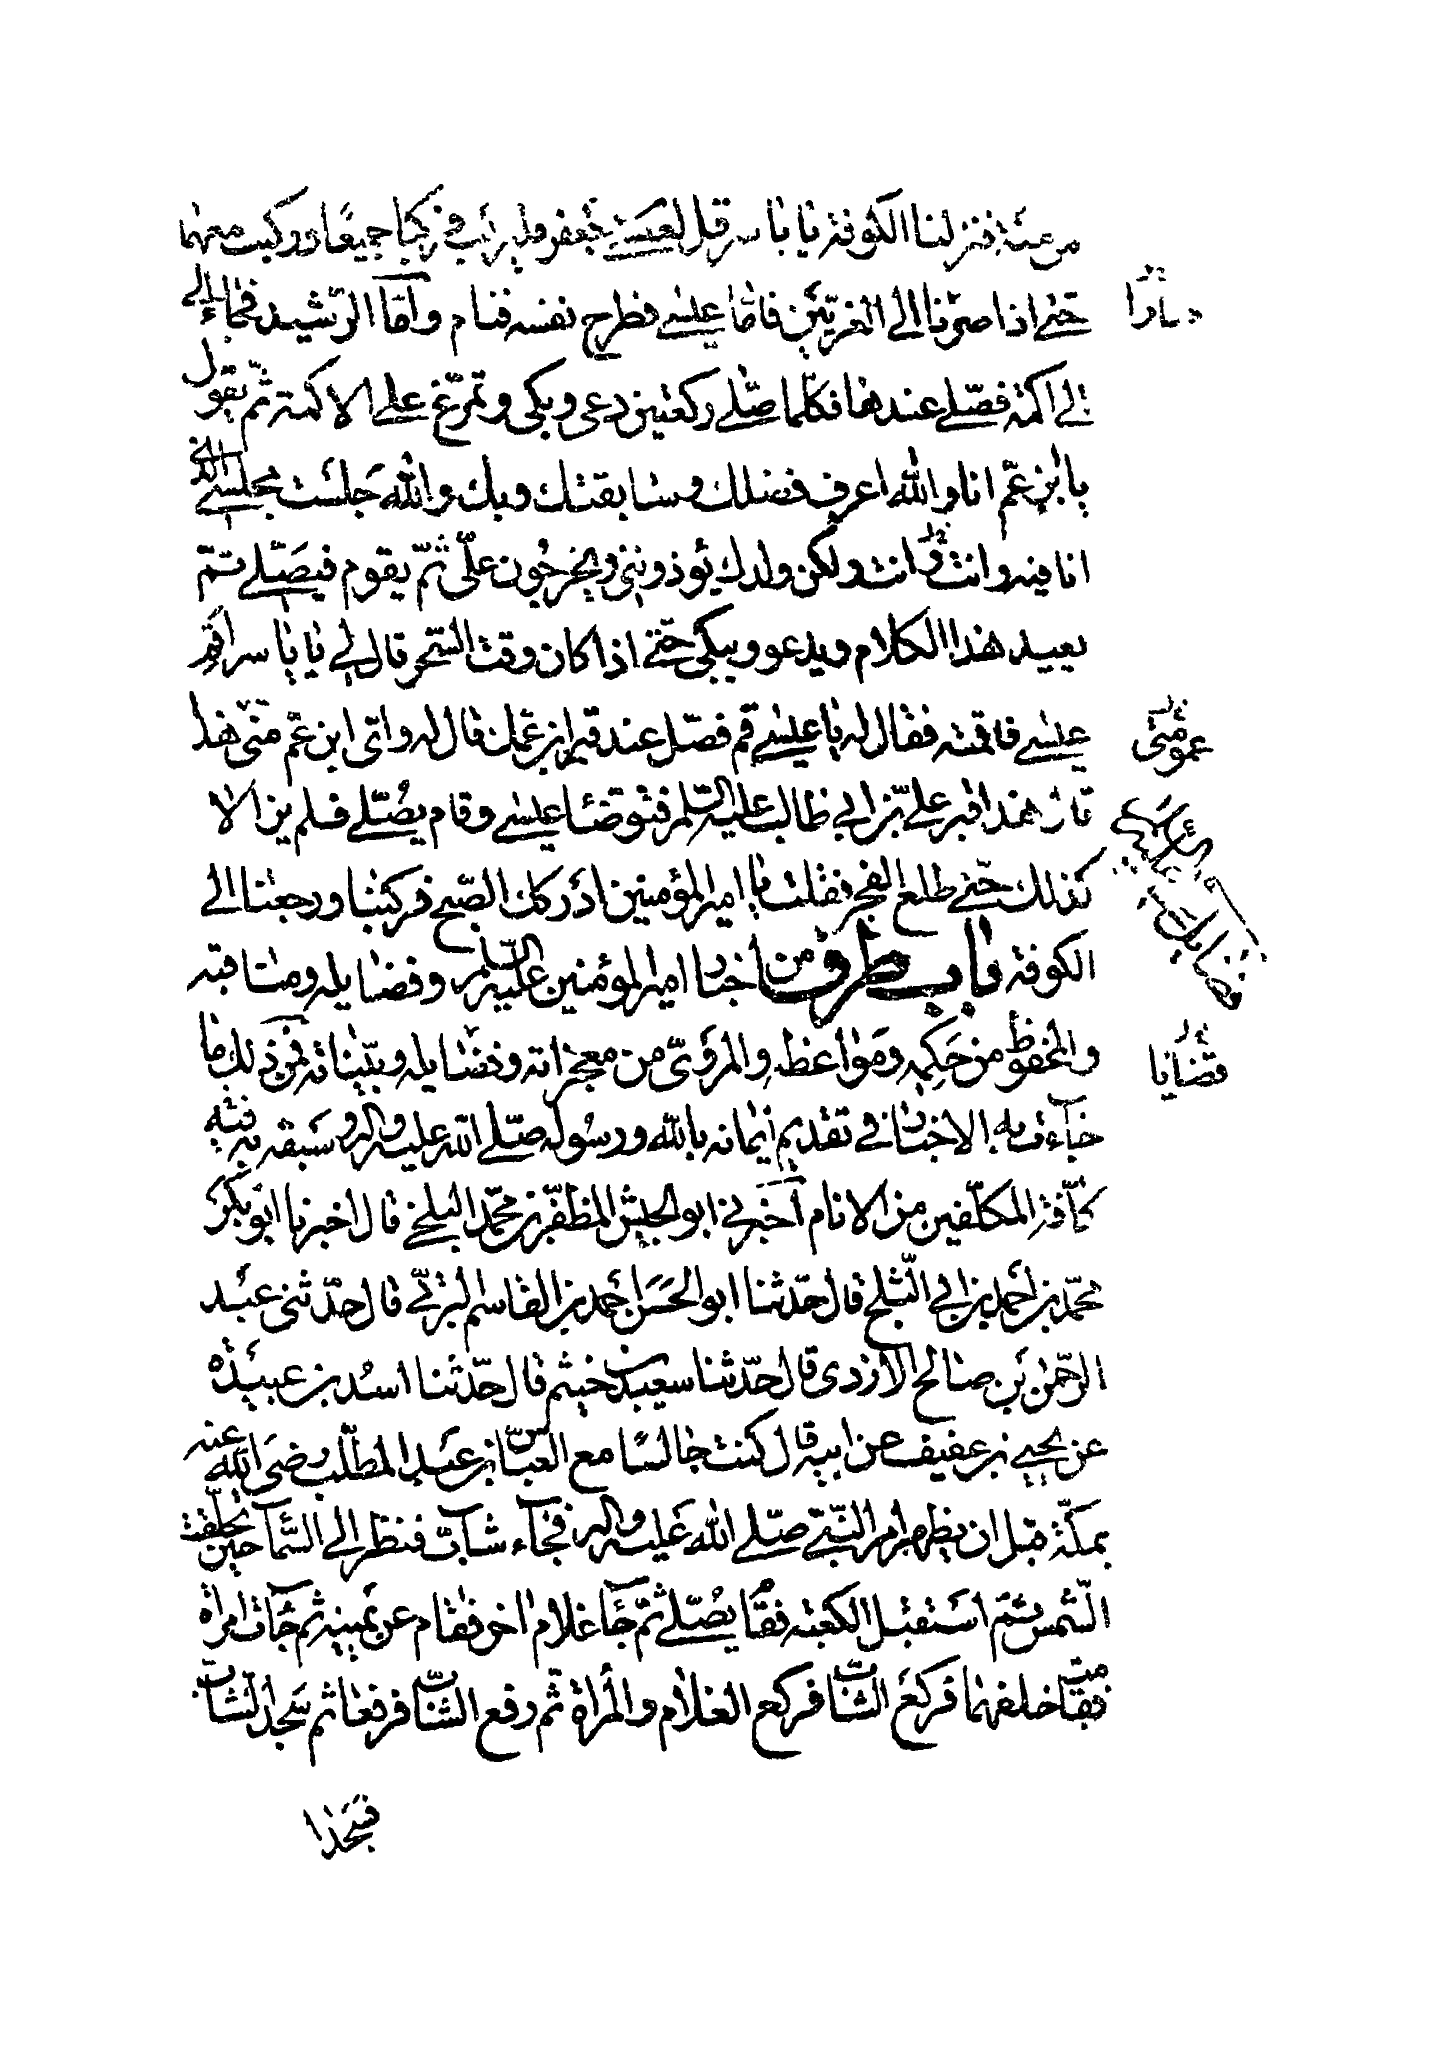 من مكة فنزلنا الكوفة يا ياسر قل لعيسى بن جعفر فليركب فركبا جميعا وركبت معهما
حتى اذا صرنا الى الغريين فاما عيسى فطرح نفسه فنام واما الرشيد فجاء الى
الى اكمة فصلى عندها فكلما صلى ركعتين دعى وبكى وتمرغ على الاكمة ثم يقول
يا بن عم انا والله اعرف فضلك وسابقتك وبك والله جلست مجلسى الذى
انا فيه وانت وانت ولكن ولدك يؤذوننى ويخرجون على ثم يقوم فيصلى ثم
يعيد هذا الكلام ويدعو ويبكى حتى اذا كان وقت السحر قال لى يا ياسر اقم
عيسى فاقمته فقال له يا عيسى قم فصل عند قبر ابن عمك قال له واى ابن عم متى هذا
قال هذا قبر على بن ابى طالب عليه السلم فتوضا عيسى وقام يصلى فلم يزالا
كذلك حتى طلع الفجر فقلت يا امير المؤمنين ادركك الصبح فركبنا ورجعنا الى
الكوفة باب طرف من اخبار امير المؤمنين عليه السلم وفضايله ومناقبه
والمحفوظ من حكمه ومواعظه والمروى من معجزاته وفضايله وبيناته فمن ذلك ما
جاءت به الاخبار فى تقديم ايمانه بالله ورسوله صلى الله عليه واله وسبقه به فيه
كافة المكلفين من الانام اخبرنى ابو الجيش المظفر بن محمد البلخى قال اخبرنا ابو بكر
محمد بن احمد بن ابى الثلج قال حدثنا ابو الحسن احمد بن القاسم البرتى قال حدثنى عبد
الرحمن بن صالح الازدى قال حدثنا سعيد بن خيثم قال حدثنا اسد بن عبيدة
عن يحيى بن عفيف عن ابيه قال كنت جالسا مع العباس بن عبد المطلب رضى الله عنه
بمكة قبل ان يظهر امر النبى صلى الله عليه واله فجاء شاب فنظر الى السما حين تحلقت
الشمس ثم استقبل الكعبة فقام يصلى ثم جا غلام اخر فقام عن يمينه ثم جات امراة
فقامت خلفهما فركع الشاب فركع الغلام والمراة ثم رفع الشاب فرفعا ثم سجد الشاب
فسجدا
سارا
عمومتى
قضايا